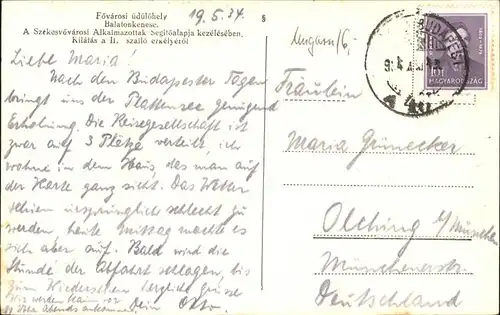 Fővárosi üdülőhely
Balatonkenese.
A Székesfővárosi Alkalmazottak Segítőalapja kezelésében.
Kilátás a II. szálló erkélyéről
19.5.34.
Liebe Maria!
Nach den Budapester Tagen
bringt uns der Plattensee genügend
Erholung. Die Reisegesellschaft ist
zwar auf 3 Plätze verteilt, ich
wohne in dem Haus, das man auf
der Karte ganz sieht. Das Wetter
schien ursprünglich schlecht zu
werden, heute Mittag machte es
sich aber auf. Bald wird die
Stunde der Abfahrt schlagen, bis
zum Wiedersehen herzliche Grüsse
Dein Otto.
Wir werden kaum vor
Uhr Abends ankommen.
Ungarn
BUDAPEST
MAGYARORSZÁG
Fräulein
Maria Grünecker
Olching b/München
Münchenerstr.
Deutschland